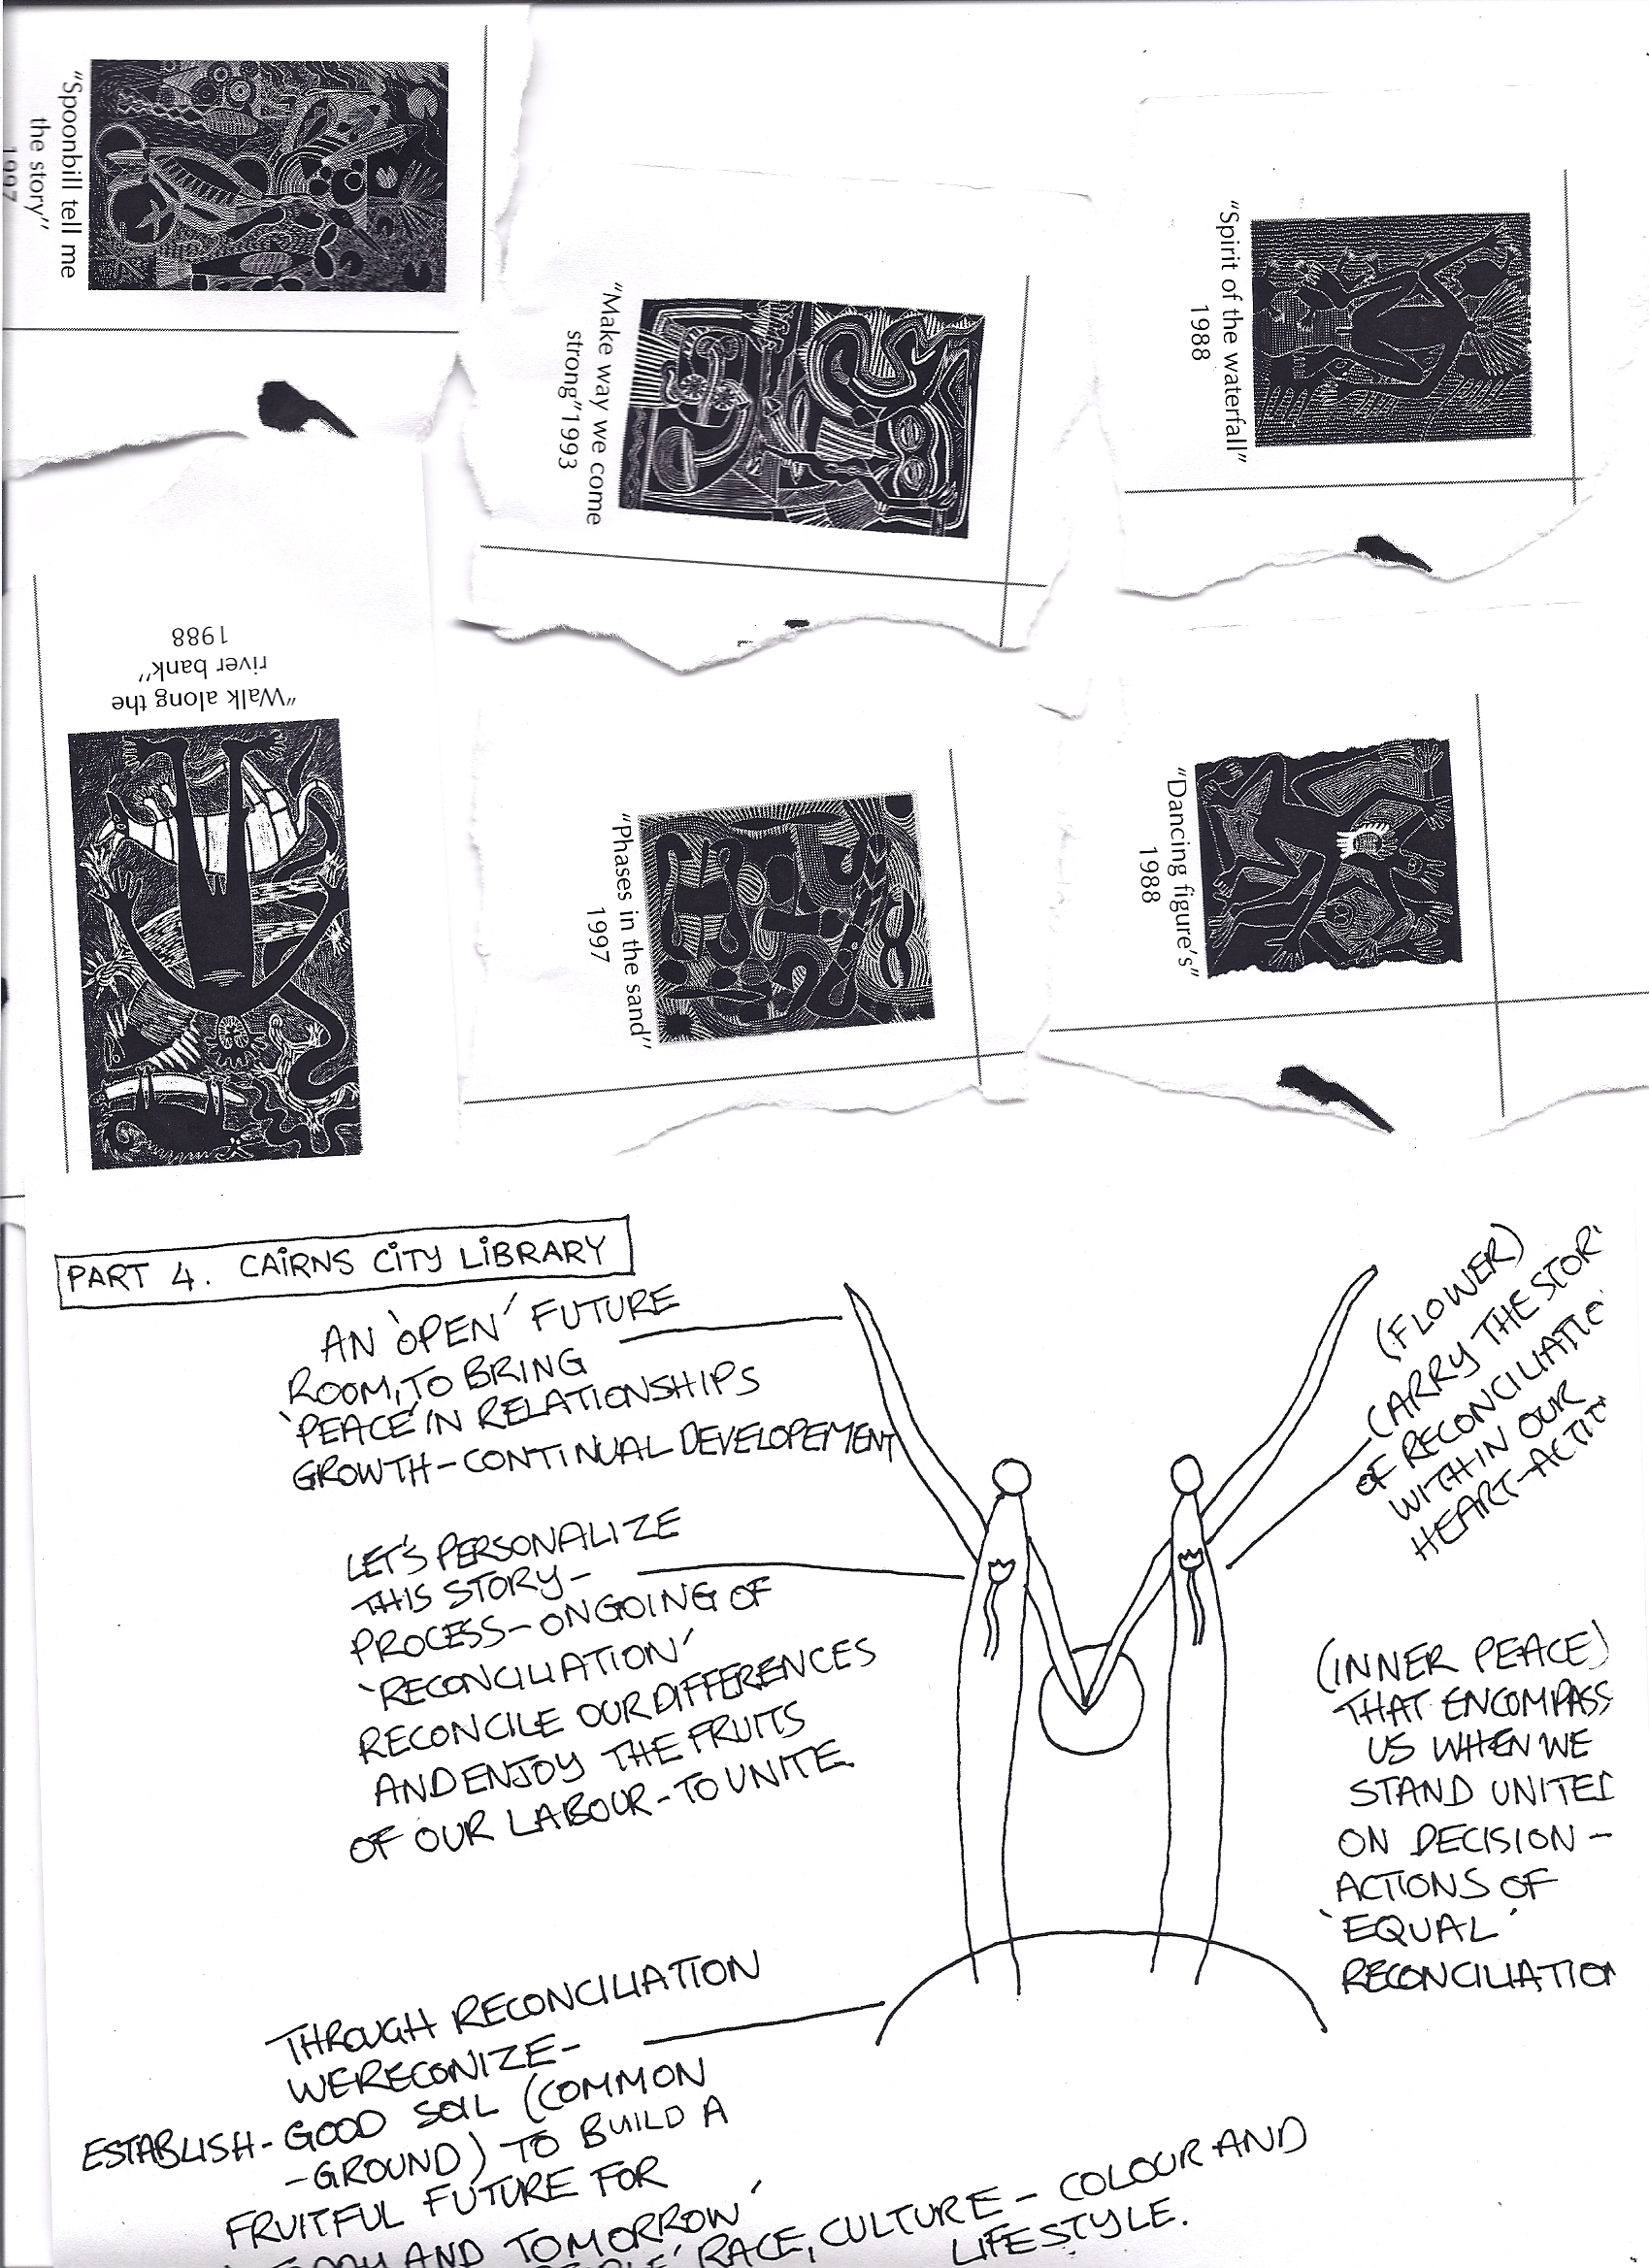 "Spoonbill tell me
the story"
1997
"Make way we come
strong"1993
"Spirit of the waterfall"
1988
"Walk along the
river bank"
1988
"Phases in the sand"
1997
"Dancing figure's"
1988
PART 4. CAIRNS CITY LIBRARY
AN 'OPEN' FUTURE
ROOM, TO BRING
'PEACE' IN RELATIONSHIPS
GROWTH - CONTINUAL DEVELOPEMENT
LET'S PERSONALIZE
THIS STORY -
PROCESS - ONGOING OF
'RECONCILIATION'
RECONCILE OUR DIFFERENCES
AND ENJOY THE FRUITS
OF OUR LABOUR - TO UNITE
(FLOWER)
CARRY THE STOR
OF RECONCILIATIO
WITHIN OUR
HEART-ACTIO
(INNER PEACE)
THAT ENCOMPASS
US WHEN WE
STAND UNITED
ON DECISION -
ACTIONS OF
'EQUAL'
RECONCILIATION
THROUGH RECONCILIATION
WE RECONIZE -
ESTABLISH - GOOD SOIL (COMMON
- GROUND) TO BUILD A
FRUITFUL FUTURE FOR
AND TOMORROW'
RACE, CULTURE - COLOUR AND
LIFESTYLE.